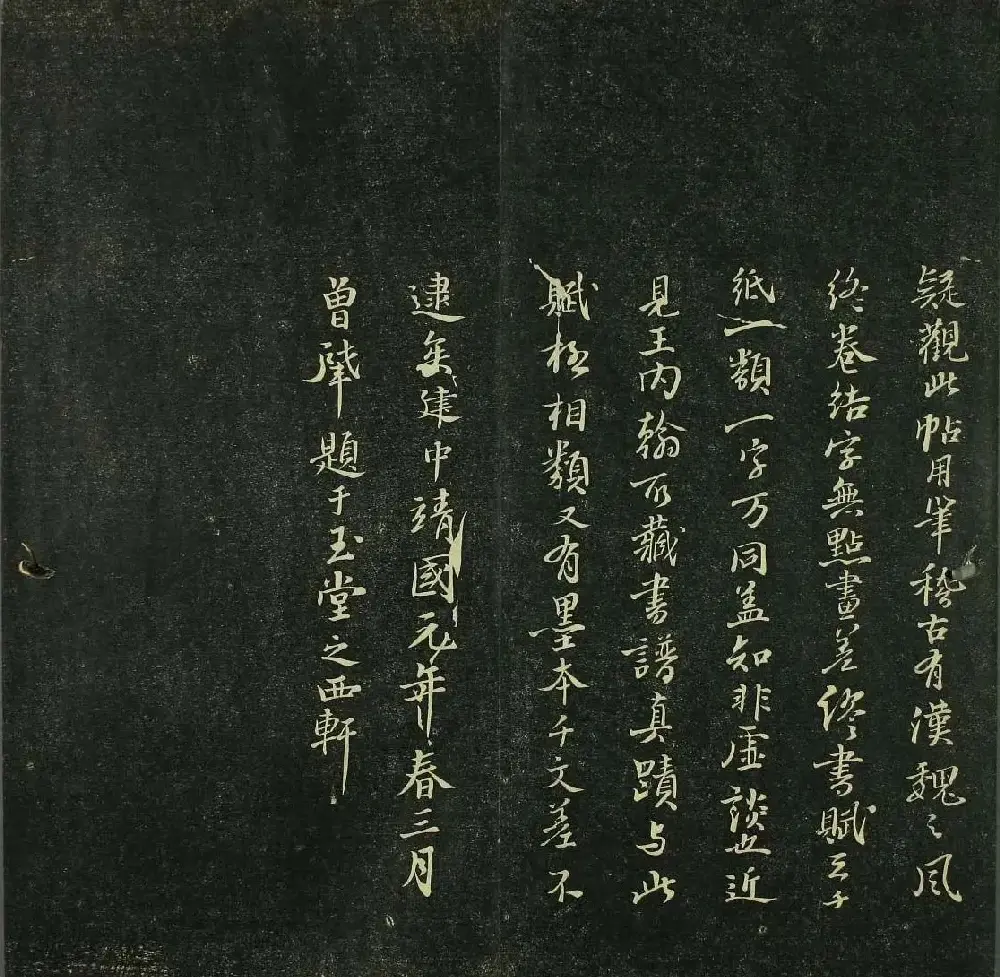 疑觀此帖用筆稽古有漢魏之風
終卷結字無點畫差終書賦云千
紙一類一字万同盖知非虛談也近
見王內翰所藏書譜真蹟与此
賦極相類又有墨本千文差不
逮矣建中靖國元年春三月
曾肇題于玉堂之西軒